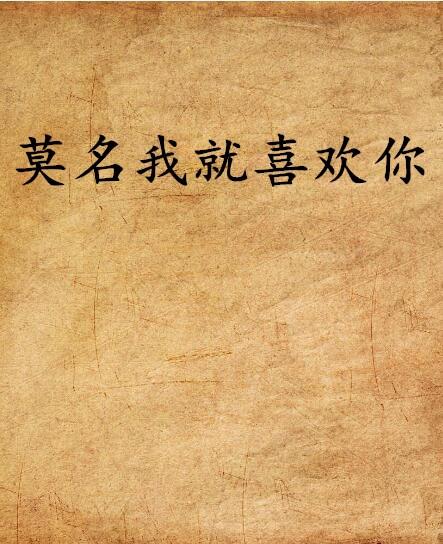 莫名我就喜欢你